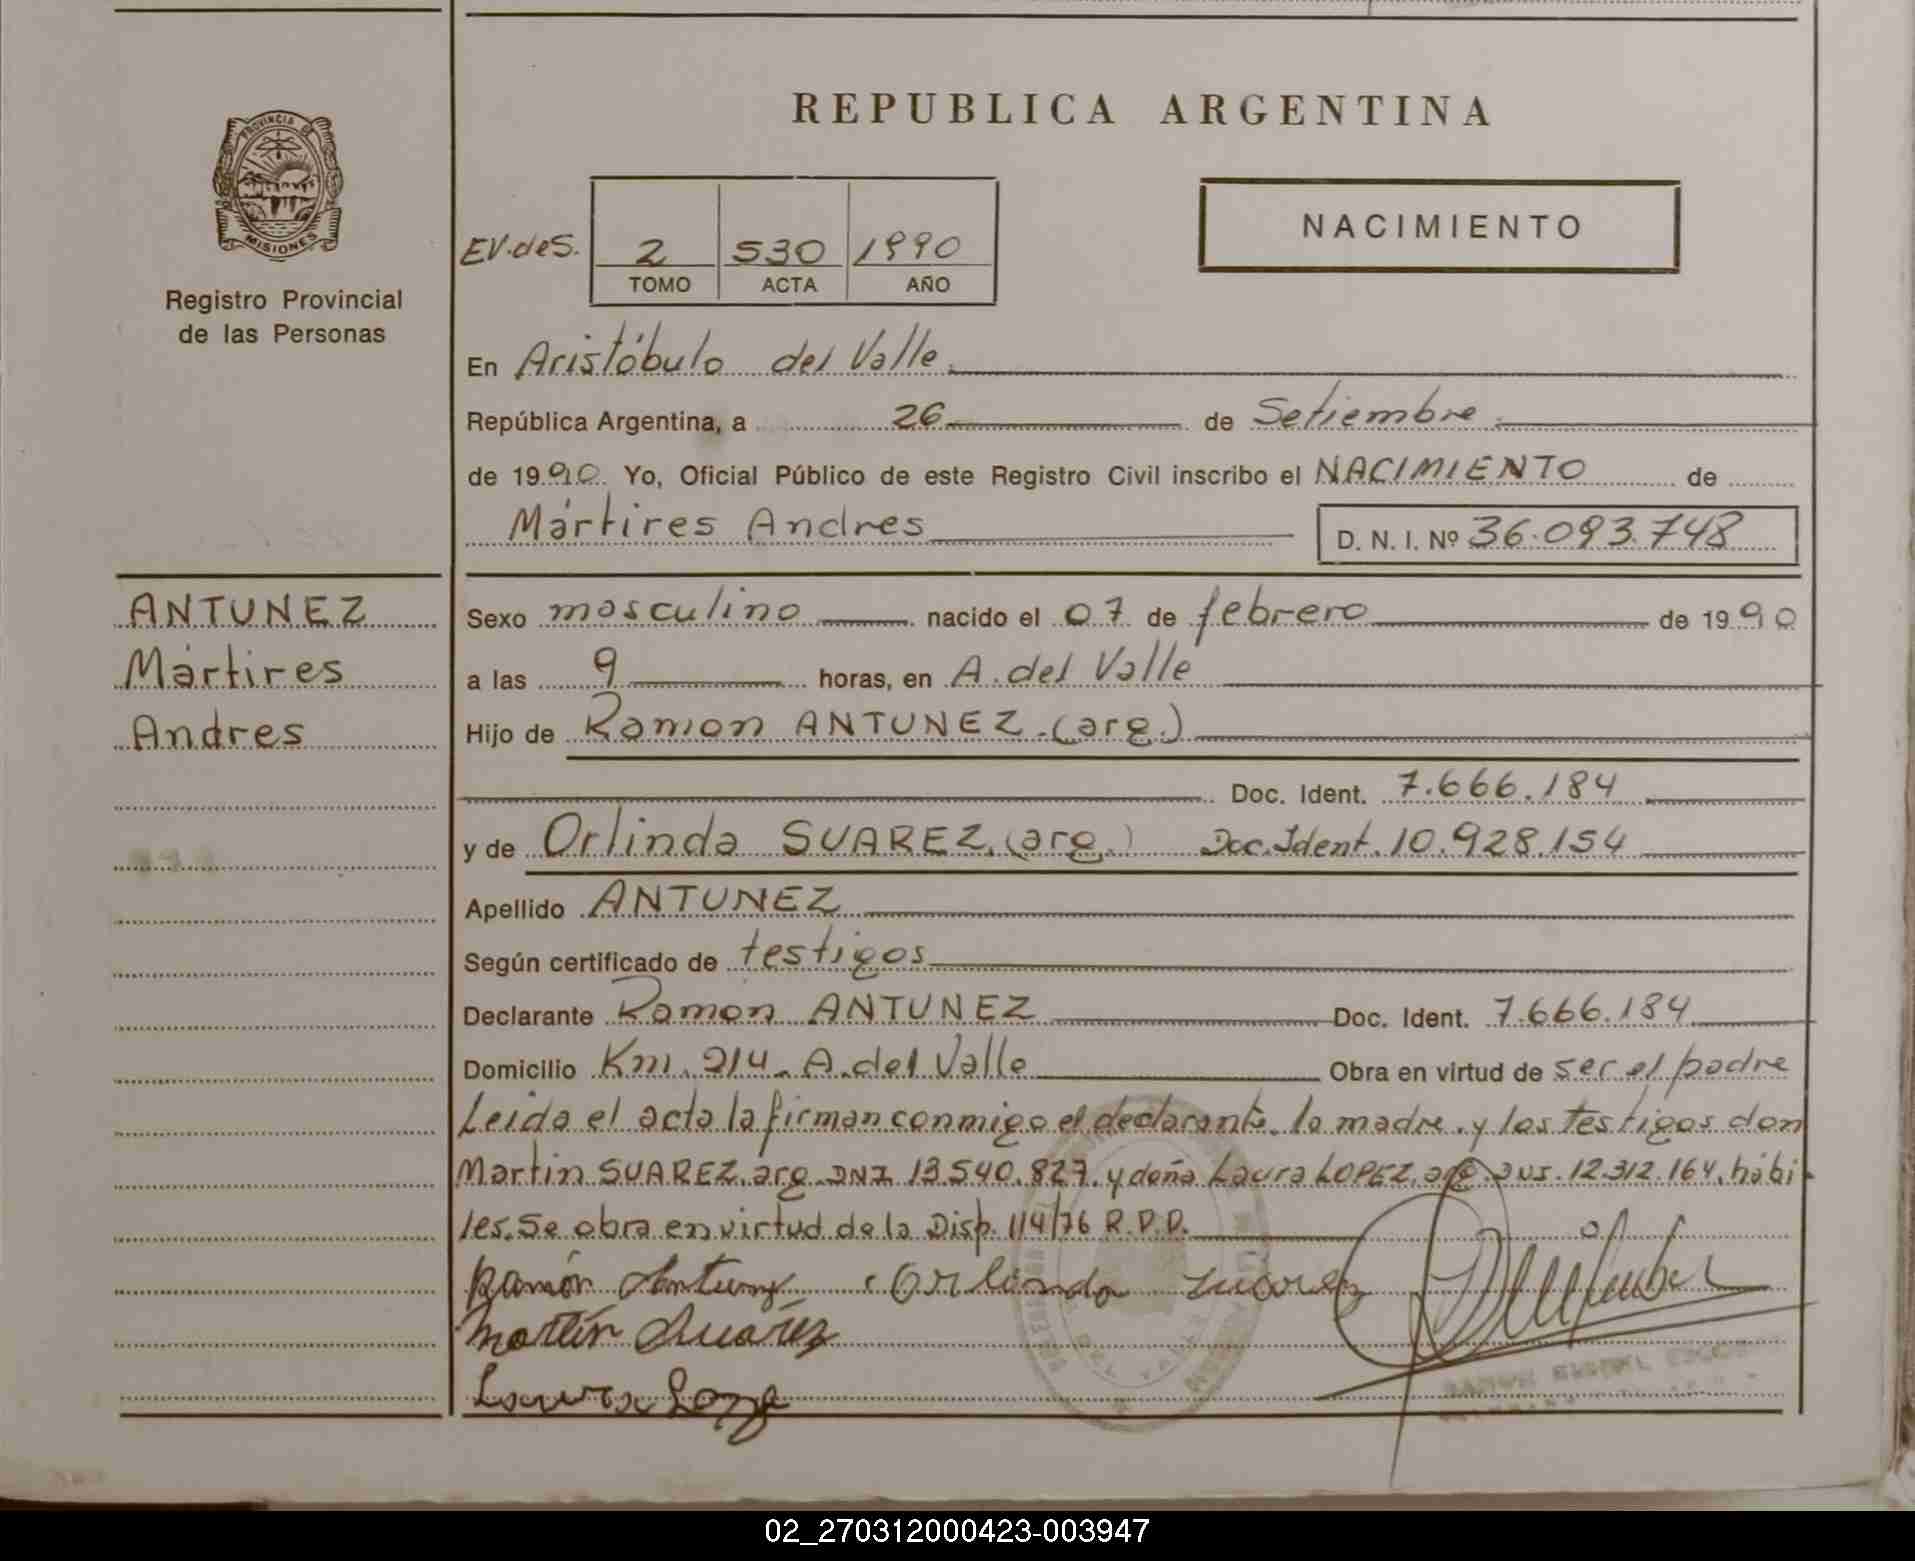 REPUBLICA ARGENTINA
PROVINCIA DE
MISIONES
Registro Provincial
de las Personas
NACIMIENTO
EV.des. 2 530 1990
TOMO ACTA AÑO
En Aristóbulo del Valle
República Argentina, a 26 de Setiembre
de 1990. Yo, Oficial Público de este Registro Civil inscribo el NACIMIENTO de
Mártires Andres D. N. I. Nº 36.093.748
ANTUNEZ
Mártires
Andres
Sexo masculino nacido el 07 de febrero de 1990
a las 9 horas, en A. del Valle
Hijo de Ramon ANTUNEZ (arg.)
Doc. Ident. 7.666.184
y de Orlinda SUAREZ (arg.) Doc. Ident. 10.928.154
Apellido ANTUNEZ
Según certificado de testigos
Declarante Ramon ANTUNEZ Doc. Ident. 7.666.184
Domicilio Km. 214. A. del Valle Obra en virtud de ser el padre
Leida el acta la firman conmigo el declarante, la madre y los testigos don
Martin SUAREZ, arg. DNI. 13.540.827, y doña Laura LOPEZ, arg. 12.312.164, hábi-
les. Se obra en virtud de la Disp. 114/76 R.P.P.
Ramón Antunez Orlinda Suarez
Martín Suárez
Laura
02_270312000423-003947